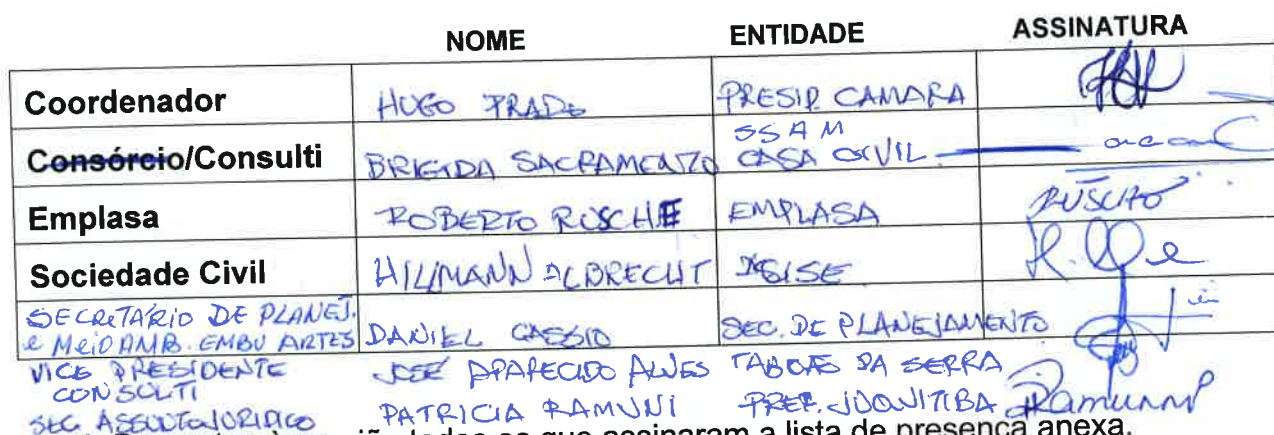 NOME ENTIDADE ASSINATURA
Coordenador HUGO PRADO PRESID. CAMARA
SSAM
Consórcio/Consulti BRIGIDA SACRAMENTO CASA CIVIL
Emplasa ROBERTO RUSCHE EMPLASA
Sociedade Civil HILLMANN ALBRECHT
SECRETÁRIO DE PLANEJ.
e MEIO AMB. EMBU ARTES DANIEL CASSIO SEC. DE PLANEJAMENTO
VICE PRESIDENTE JOSÉ APARECIDO ALVES TABOÃO DA SERRA
CONSULTI
SEC. ASSUNTO JURIDICO PATRICIA RAMUNI PREF. JUQUITIBA Ramunni
todos os que assinaram a lista de presença anexa.